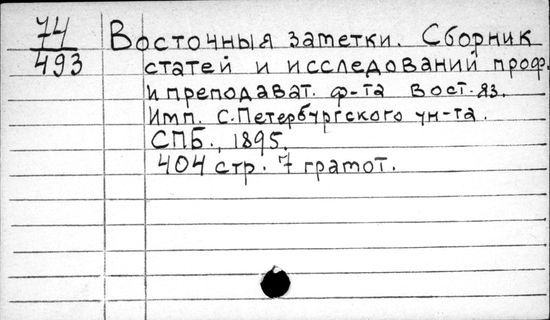 74
493
Восточныя заметки. Сборник
статей и исследований проф.
и преподават. ф-та Вост. яз.
Имп. С.Петербургского ун-та.
СПБ., 1895.
404 стр. 7 грамот.